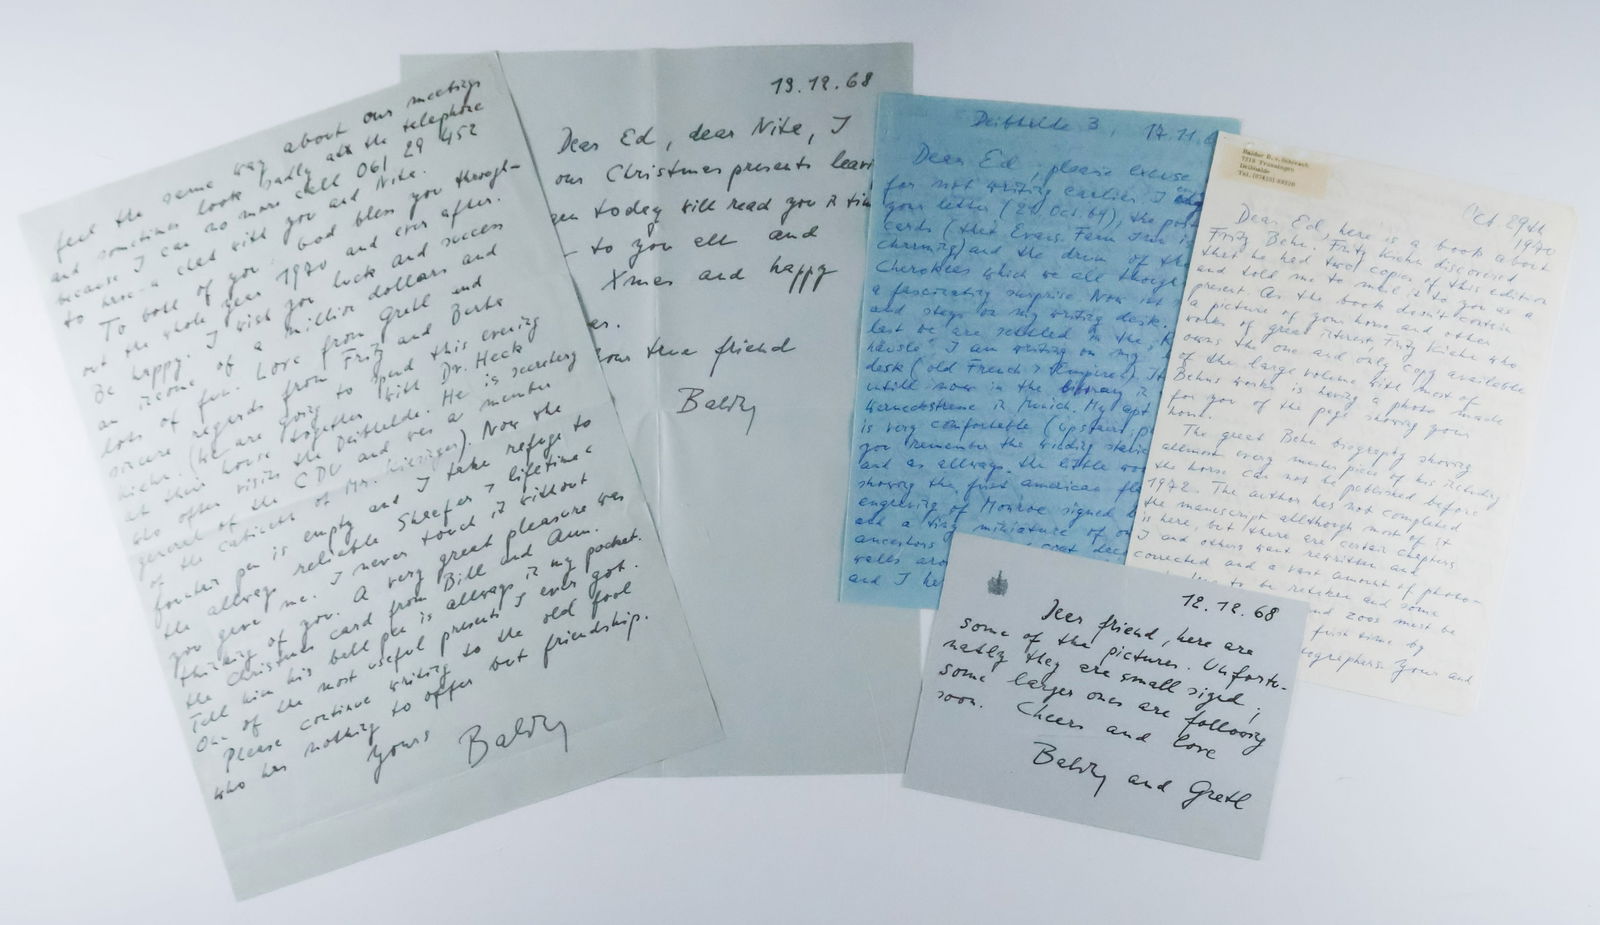 feel the same way about our meetings
and sometimes look sadly at the telephone
because I can no more call 061 29 452
to have a chat with you and Nite.
To both of you God bless you through-
out the whole year 1970 and ever after.
Be happy. I wish you luck and success
an income of a million dollars and
lots of fun. Love from Gretl and
sincere regards from Fritz and Berta
Kiehn. (We are going to spend this evening
at their house together with Dr. Heck
who often visits the Deibhalde. He is secretary
general of the CDU and was a member
of the cabinett of Mr. Kiesinger). Now the
founten pen is empty and I take refuge to
the allways reliable Sheefer's lifetime
you gave me. I never touch it without
thinking of you. A very great pleasure was
the Christmas card from Bill and Ann.
Tell him his ball pen is allways in my pocket.
One of the most useful presents I ever got.
Please continue writing to the old fool
who has nothing to offer but friendship.
Yours Baldy
13.12.68
Dear Ed, dear Nite, I
our Christmas presents
today will read you in
to you all and
Xmas and happy
your true friend
Baldy
Deibhalde 3, 17.11.
Dear Ed, please excuse
for not writing earlier. I
your letter (21. Oct. 69), the
cards (that Evans Farm Inn is
charming) and the drum of the
Cherokees which we all
a fascinating surprise. Now it
and stays on my writing desk.
last we are settled in the
häusle" I am writing on my
desk (old French Empire).
untill now in the library in
in Munich. My apt
is very comfortable (upstairs,
you remember the winding
and as allways the little
showing the first american
engraving of Monroe signed
and a tiny miniature of
ancestors
walls
and I
Baldur B. v. Schirach
7218 Trossingen
Deibhalde
Oct. 29th
1970
Dear Ed, here is a book about
Fritz Behn. Fritz Kiehn discovered
that he had two copies of this edition
and told me to mail it to you as a
present. As the book doesn't contain
a picture of your house and other
works of great interest Fritz Kiehn who
owns the one and only copy available
of the large volume with most of
Behns works is having a photo made
for you of the page showing your
home.
The great Behn biography showing
allmost every master piece of his including
the horse can not be published before
1972. The author has not completed
the manuscript allthough most of it
is here, but there are certain chapters
I and others want rewritten and
corrected and a vast amount of photo-
to be retaken and some
zoos must be
first time by
Your and
12.12.68
Dear friend, here are
some of the pictures. Unfortu-
natly they are small sized;
some larger ones are following
soon. Cheers and love
Baldy and Gretl